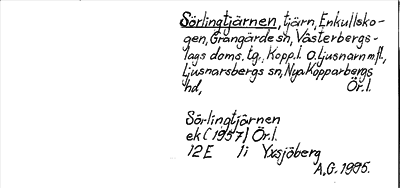 Sörlingtjärnen, tjärn, Enkullsko-
gen, Grangärde sn, Västerbergs-
lags doms. tg., Kopp.l. o. Ljusnarn m.fl.,
Ljusnarsbergs sn, Nya Kopparbergs
hd, Ör.l.
Sörlingtjärnen
ek (1957) Ör.l.
12E 1i Yxsjöberg
A.G. 1995.